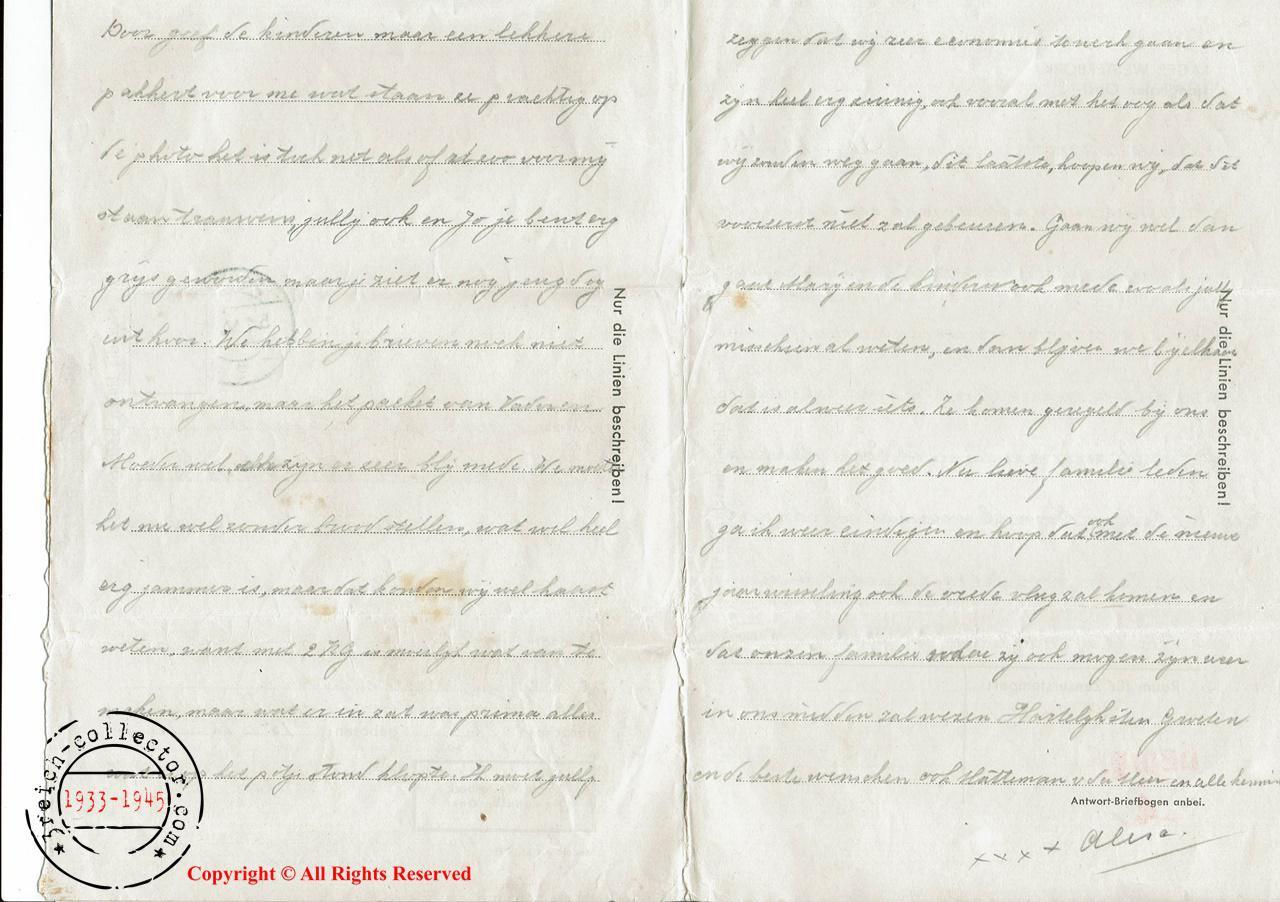 Door geef de kinderen maar een lekkere
pakkert voor me wat staan ze prachtig op
de photo het is toch net als of ze zoo voor mij
staan trouwens, jullij ook en Jo je bent erg
grijs geworden maar je ziet er nog jeugdig
uit hoor. We hebben je brieven noch niet
ontvangen, maar het packet van Vader en
Moeder wel zijn er zeer blij mede. We
het nu wel zonder brood stellen, wat wel heel
erg jammer is, maar dat konden wij wel haast
weten, want met 2 KG is moeilijk wat van te
maken, maar wat er in zat was prima alles
op het potje stond klopte. Ik moet jullij
Nur die Linien beschreiben!
zeggen dat wij zeer economis te werk gaan en
zijn heel erg zuinig, ook vooral met het oog als dat
wij zouden weg gaan, dit laatste, hoopen wij, dat dit
vooreerst niet zal gebeuren. Gaan wij wel dan
gaat Marij en de kinderen ook mede zoo als jullij
misschien al weten, en dan blijven we bij elkaar
dat is alweer iets. Ze komen geregeld bij ons
en maken het goed. Nu lieve familie leden
ga ik weer eindigen en hoop dat ook met de nieuwe
jaarwisseling ook de vrede vlug zal komen en
dat onzen familie zij ook mogen zijn weer
in ons midden zal wezen Hartelijksten Groeten
en de beste wenschen ook Hatteman v der Heer en alle
Nur die Linien beschreiben!
Antwort-Briefbogen anbei.
xxxx
3reich-collector.com
1933-1945
Copyright © All Rights Reserved